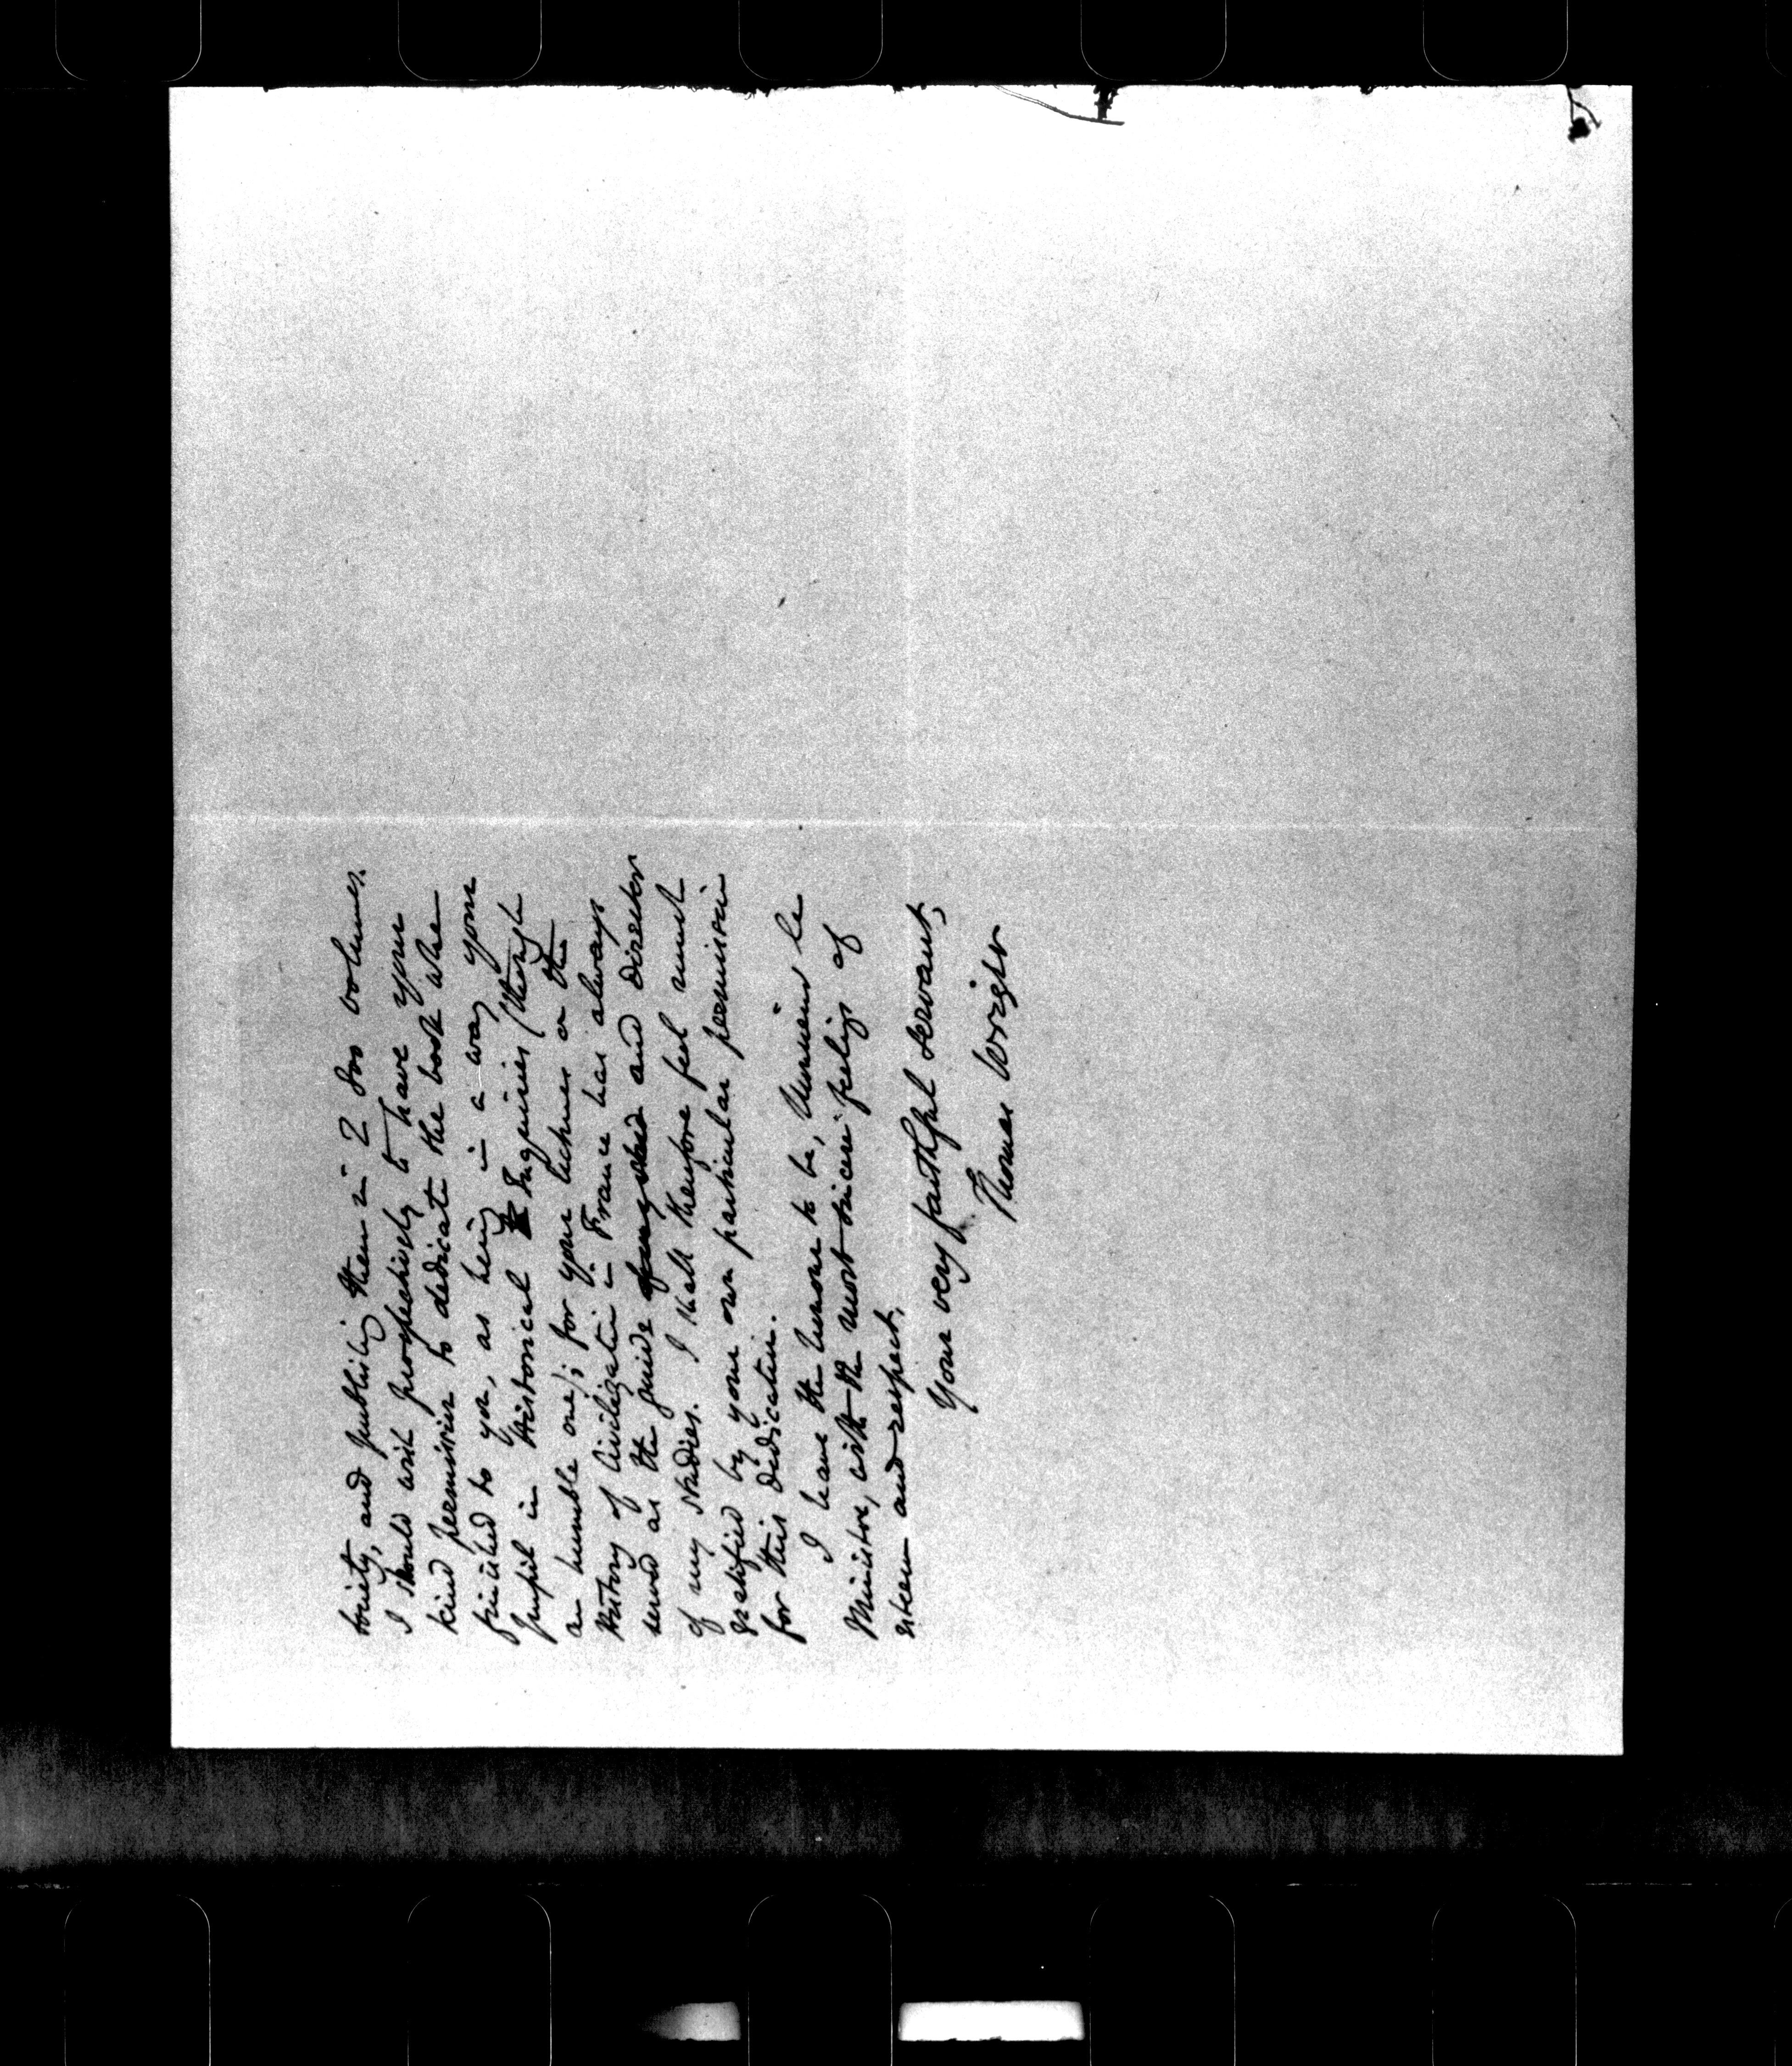 Society, and publishing them in 2 8vo volumes.
I should wish prospectively to have your
kind permission to dedicate the book when
finished to you, as being in a way your
pupil in Historical Inquiries (though
an humble one); for your lectures on the
History of Civilization in France has always
served as the guide and director
of my studies. I shall therefore feel much
gratified by your own particular permission
for this dedication.
I have the honour to be, Monsieur le
Ministre, with the most sincere feelings of
esteem and respect,
Your very faithful servant,
Thomas Wright